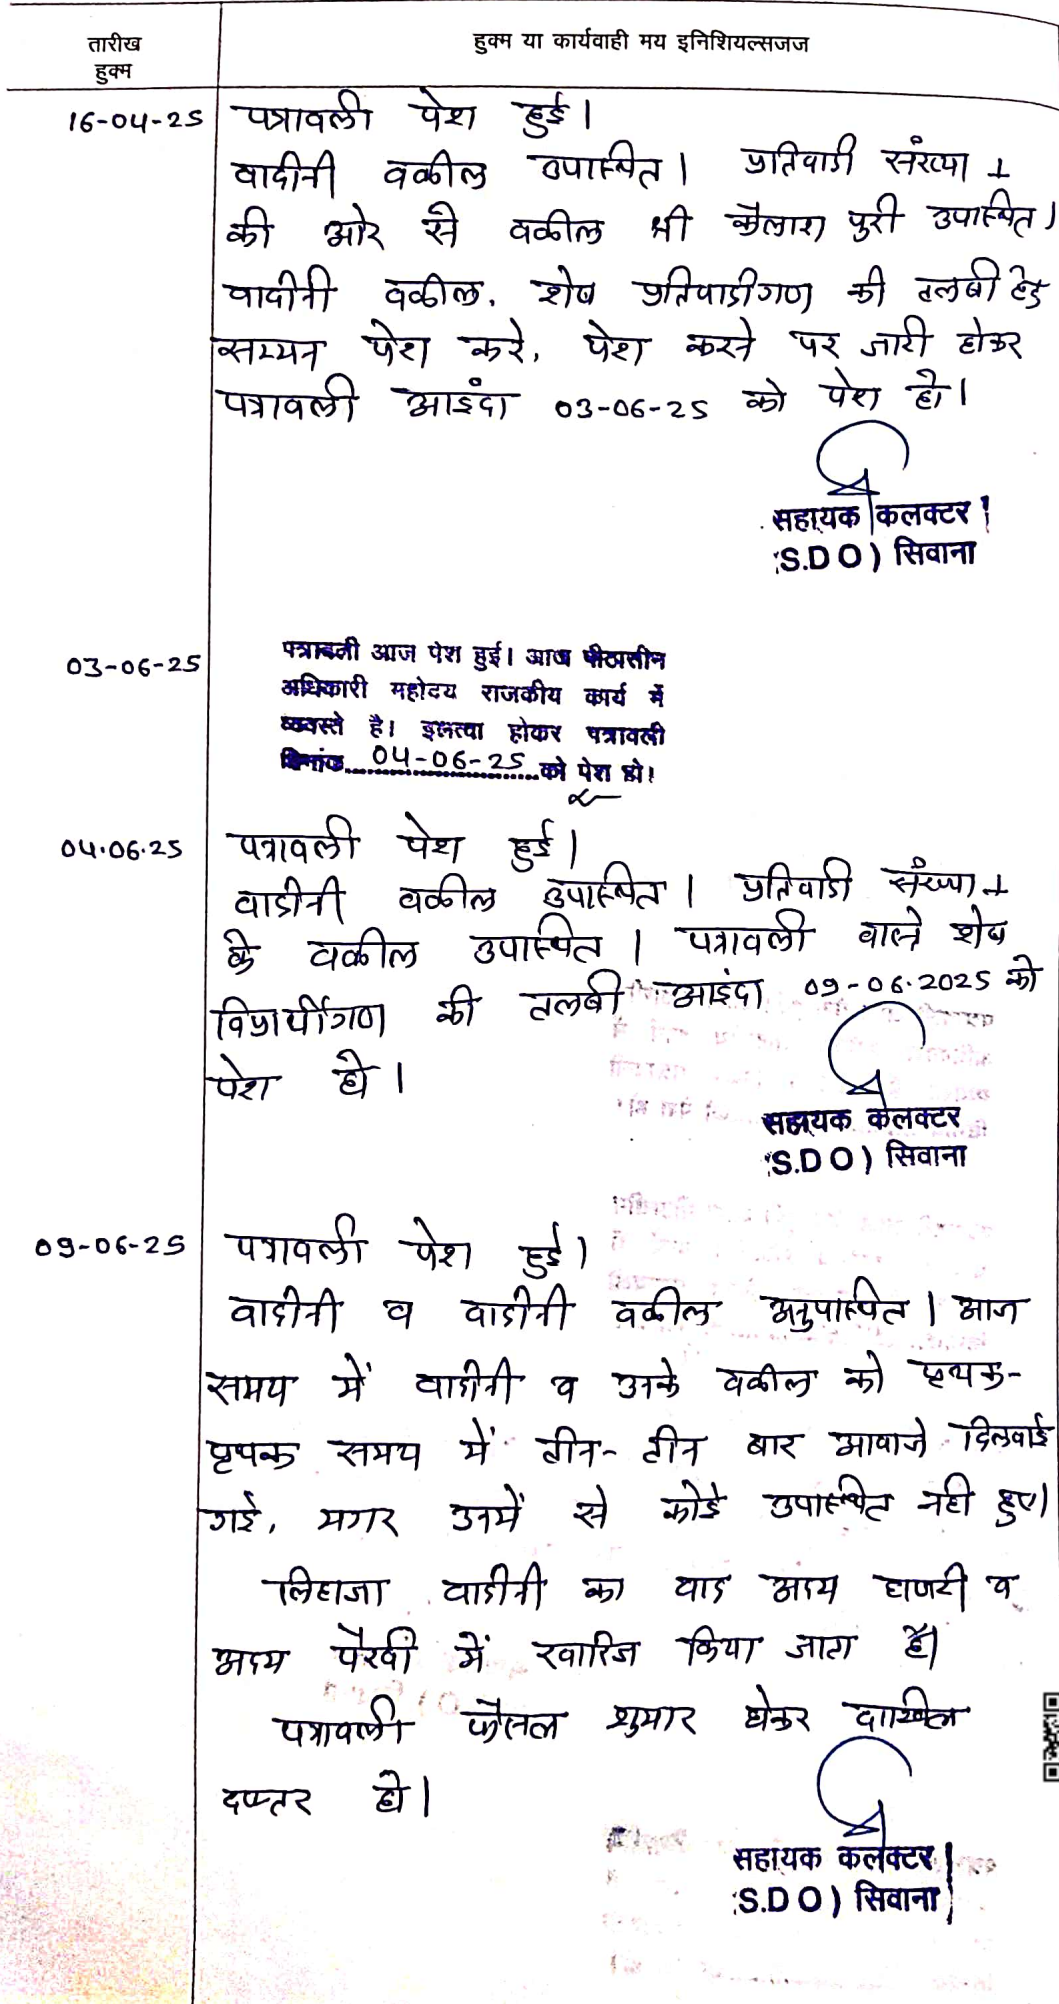 तारीख
हुक्म
हुक्म या कार्यवाही मय इनिशियल्सजज
16-04-25 पत्रावली पेश हुई।
वादीनी वकील उपस्थित। प्रतिवादी संख्या 1
की ओर से वकील श्री कैलाश पुरी उपस्थित।
वादीनी वकील, शेष प्रतिवादीगण की तलबी हेतु
सम्मन पेश करे, पेश करने पर जारी होकर
पत्रावली आइंदा 03-06-25 को पेश हो।
सहायक कलक्टर
(S.D O) सिवाना
03-06-25 पत्रावली आज पेश हुई। आज पीठासीन
अधिकारी महोदय राजकीय कार्य में
व्यवस्ते है। इलत्वा होकर पत्रावली
दिनांक 04-06-25 को पेश हो।
04.06.25 पत्रावली पेश हुई।
वादीनी वकील उपस्थित। प्रतिवादी संख्या 1
के वकील उपस्थित। पत्रावली वास्ते शेष
विप्रार्थीगण की तलबी आइंदा 09-06.2025 को
पेश हो।
सहायक कलक्टर
(S.D O) सिवाना
09-06-25 पत्रावली पेश हुई।
वादीनी व वादीनी वकील अनुपस्थित। आज
समय में वादीनी व उनके वकील को पृथक-
पृथक समय में तीन-तीन बार आवाजे दिलवाई
गई, मगर उनमें से कोई उपस्थित नही हुए।
लिहाजा वादीनी का वाद अदम हाजरी व
अदम पैरवी में खारिज किया जाता है।
पत्रावली फैसल शुमार होकर दाखिल
दफ्तर हो।
सहायक कलक्टर
(S.D O) सिवाना